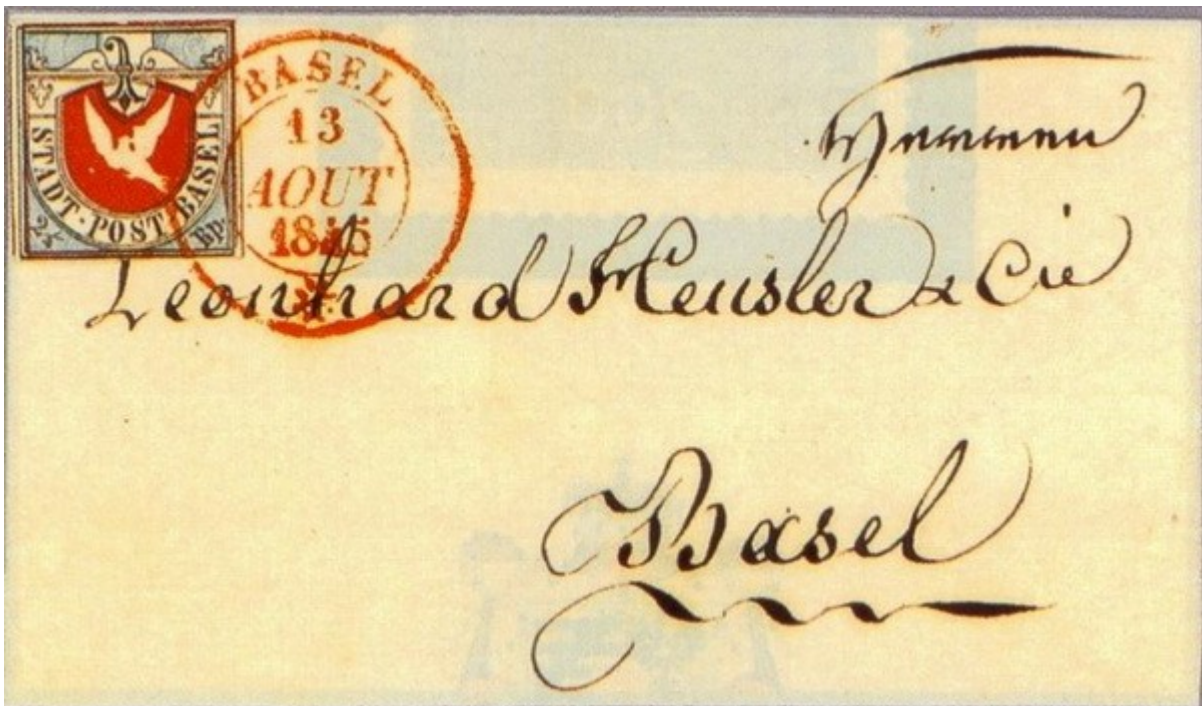 STADT·POST·BASEL
2½ Rp.
BASEL
13
AOUT
1845
Herren
Leonhard Heusler & Cie
Basel